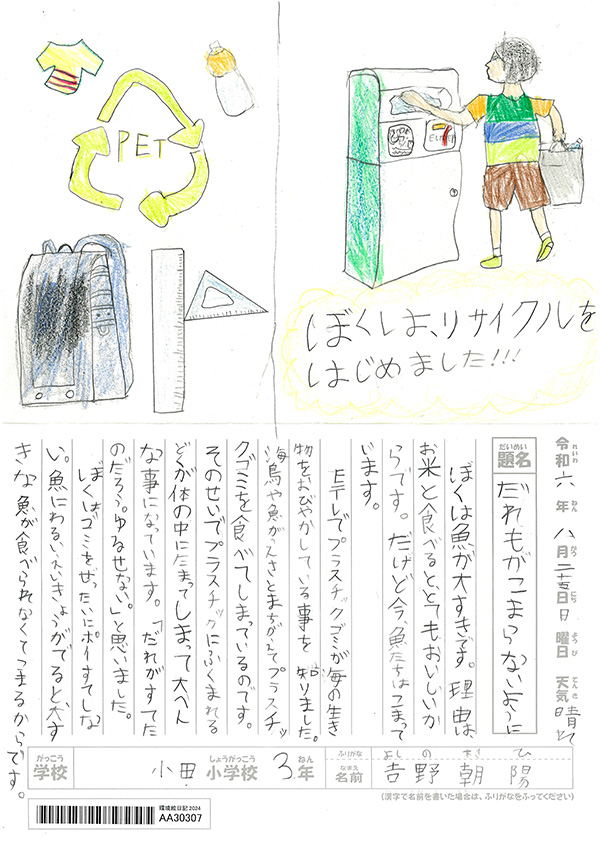 PET
ぼくは、リサイクルを
はじめました!!!
令和六年八月二十五日日曜日天気晴れ
題名 だれもがこまらないように
ぼくは魚が大すきです。理由は
お米と食べるととてもおいしいか
らです。だけど今、魚たちはこまって
います。
Eテレでプラスチックゴミが海の生き
物をおびやかしている事を知りました。
海鳥や魚がえさとまちがえてプラスチッ
クゴミを食べてしまっているのです。
そのせいでプラスチックにふくまれる
どくが体の中にたまってしまって大へん
な事になっています。「だれがすてた
のだろう。ゆるせない。」と思いました。
ぼくはゴミをぜったいにポイすてしな
い。魚にわるいえいきょうがでると大す
きな魚が食べられなくてこまるからです。
学校 小田小学校 3年
ふりがな よしの あさひ
名前 吉野 朝陽
(漢字で名前を書いた場合は、ふりがなをふってください)
環境絵日記2024
AA30307